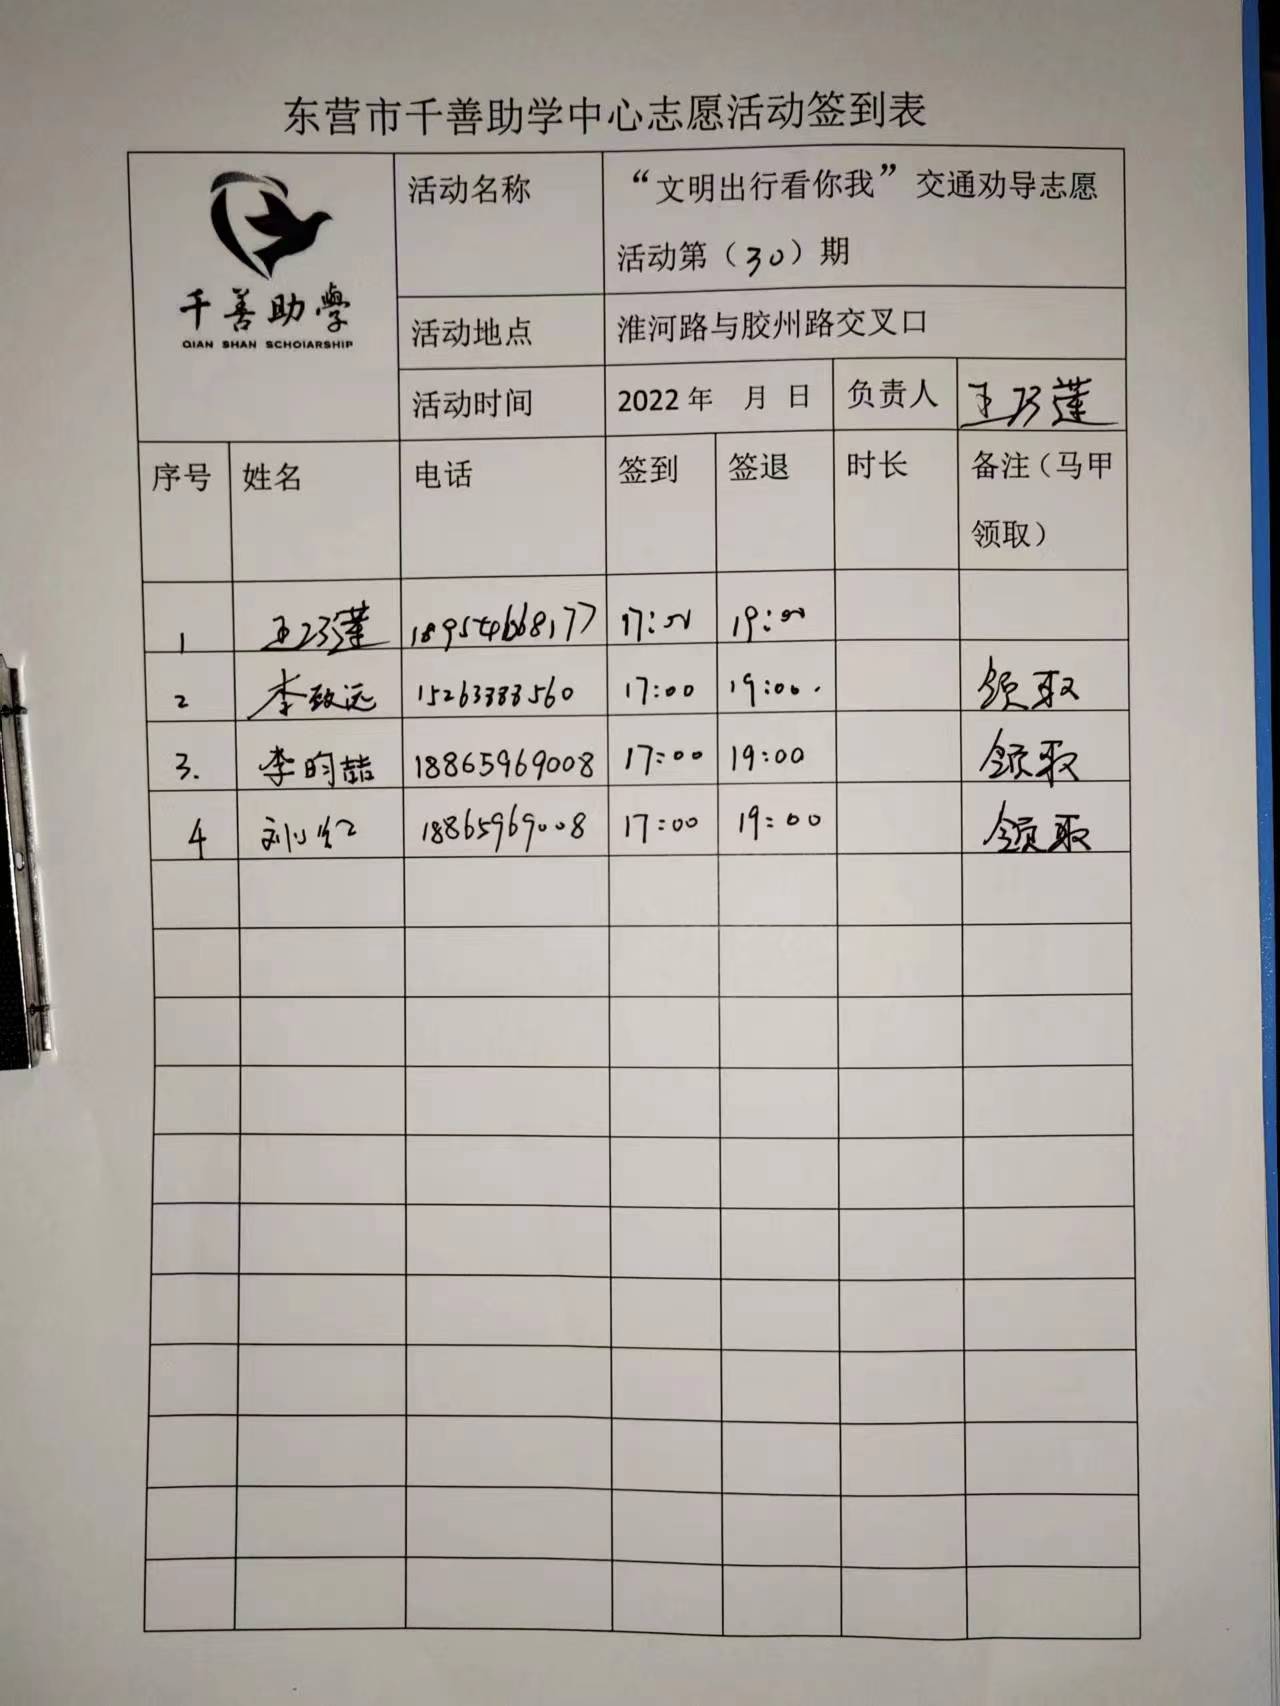 东营市千善助学中心志愿活动签到表
千善助學
QIAN SHAN SCHOIARSHIP
活动名称 “文明出行看你我”交通劝导志愿
活动第（30）期
活动地点 淮河路与胶州路交叉口
活动时间 2022年 月 日 负责人 王巧莲
序号 姓名 电话 签到 签退 时长 备注（马甲
领取）
1 王巧莲 18954668177 17:00 19:00
2 李致远 15263388560 17:00 19:00. 领取
3. 李昀喆 18865969008 17:00 19:00 领取
4 刘 18865969008 17:00 19:00 领取